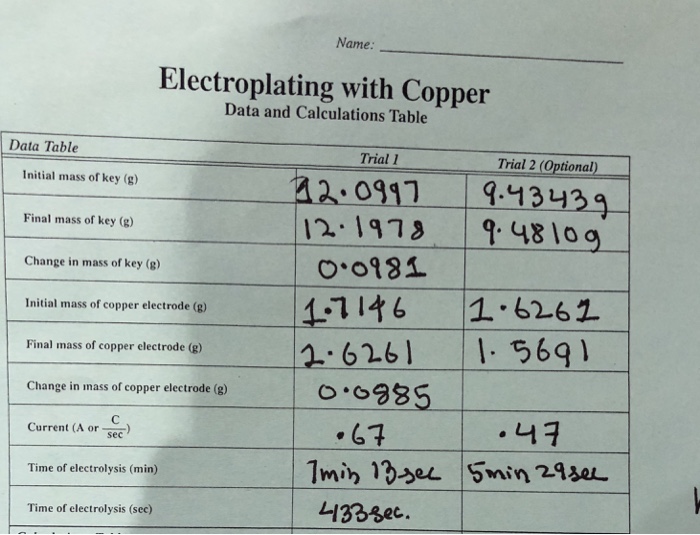 Name:
Electroplating with Copper
Data and Calculations Table
Data Table Trial 1 Trial 2 (Optional)
Initial mass of key (g) 12.0997 9.4343g
Final mass of key (g) 12.1978 9.4810g
Change in mass of key (g) 0.0981
Initial mass of copper electrode (g) 1.7146 1.6261
Final mass of copper electrode (g) 1.6261 1.5691
Change in mass of copper electrode (g) 0.0885
Current (A or C/sec) .67 .47
Time of electrolysis (min) 7min 13sec 5min 29sec
Time of electrolysis (sec) 433sec.